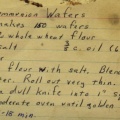 ommunion Wafers
makes 150 wafers
whole wheat flour
salt ⅔ c. oil
flour with salt. Blen
er. Roll out very thin.
dull knife into 1" S
oderate oven until golden
-18 min.